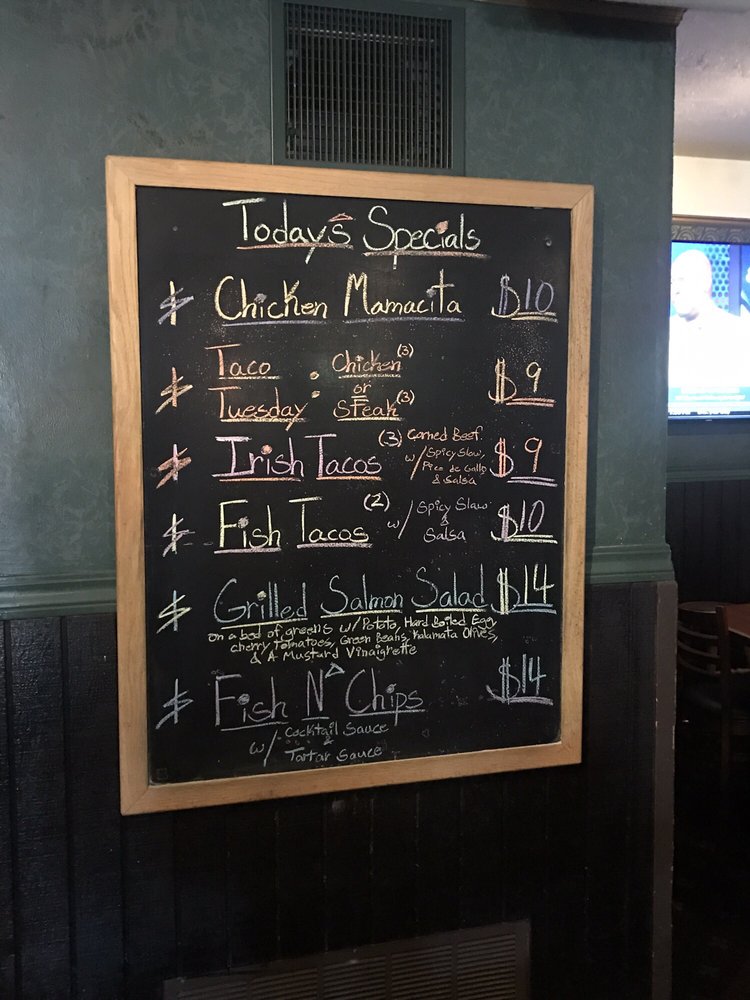 Today's Specials
Chicken Mamacita $10
Taco Tuesday: Chicken (3) or Steak (3) $9
Irish Tacos (3) Corned Beef $9
w/ Spicy Slaw,
Pico de Gallo
& Salsa
Fish Tacos (2) w/ Spicy Slaw & Salsa $10
Grilled Salmon Salad $14
on a bed of greens w/ Potato, Hard Boiled Egg,
cherry tomatoes, Green Beans, Kalamata Olives,
& A Mustard Vinaigrette
Fish N' Chips $14
w/ Cocktail Sauce
&
Tartar Sauce